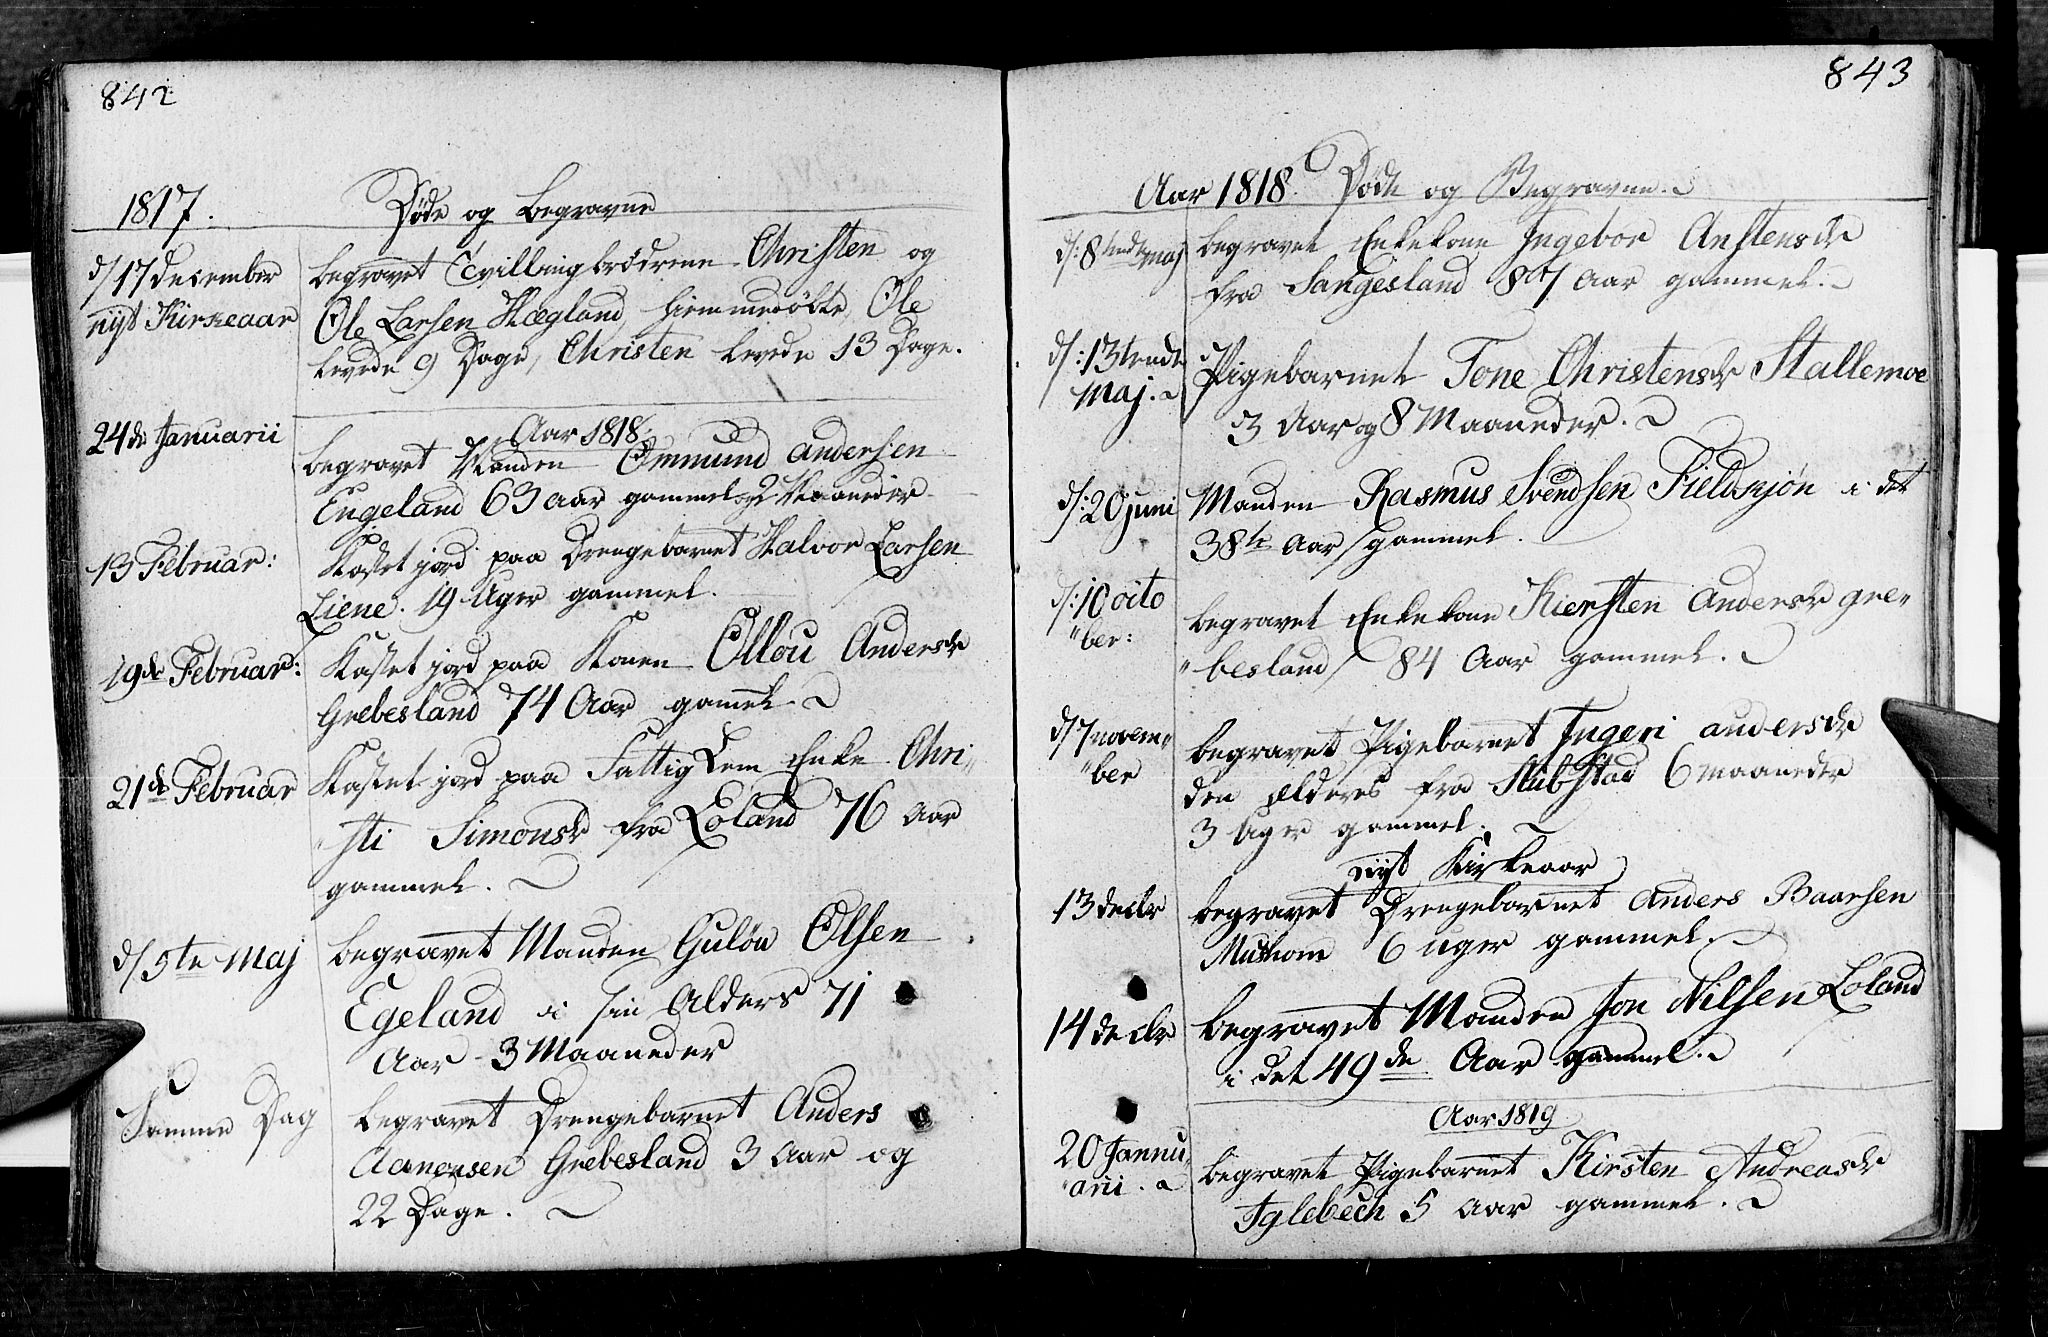 842
1817. Døde og begravne
d/17 december
nyt Kirkeaar
begravet Tvillingbrødrene Christen og
Ole Larsen Hægland, hiemmedøbte, Ole
levede 9 Dage, Christen levede 13 Dage.
Aar 1818.
24de Januarii
begravet Manden Ommund Andersen
Engeland 63 aar gammel og 2 Maaneder
13 Februar:
Kastet jord paa Drengebarnet Halvor Larsen
Liene. 19 Uger gammel.
19de Februar:
Kastet jord paa Konen Ollou Andersdr
Grebesland 74 Aar gamel.
21de Februar
Kastet jord paa Fattig Lem Enke Chri„
„sti Simonsdr fra Loland 76 Aar
gammel.
d/5te Maj
begravet Manden Guløv Olsen
Egeland i sin Alders 71
Aar 3 Maaneder
Samme Dag
begravet Drengebarnet Anders
Aanensen Grebesland 3 Aar og
22 Dage.
843
Aar 1818. Døde og Begravne.
d/: 8tende maj
begravet Enkekone Ingebor Anstensdr
fra Sangesland 87 Aar gammel.
d/: 13tende
Maj.
Pigebarnet Tone Christensdr Stallemoe
3 Aar og 8 Maaneder.
d/: 20 juni
Manden Rasmus Svendsen Fieldsjøn i det
38te Aar gammel.
d/: 10 octo
„ber:
begravet Enkekone Kiersten Andersdr Gre„
„besland 84 Aar gammel.
d/7 novem„
„ber
begravet Pigebarnet Ingeri andersdr
den Elderes fra Stubstad 6 maaneder
3 Uger gammel.
nyt Kirkeaar
13 decbr
begravet Drengebarnet Anders Baarsen
Mushom 6 uger gammel.
14 decbr
begravet Manden Jon Nilsen Loland
i det 49de Aar gammel.
Aar 1819
20 Jannu„
„arii.
begravet Pigebarnet Kirsten Andreasdr
Iglebech 5 Aar gammel.